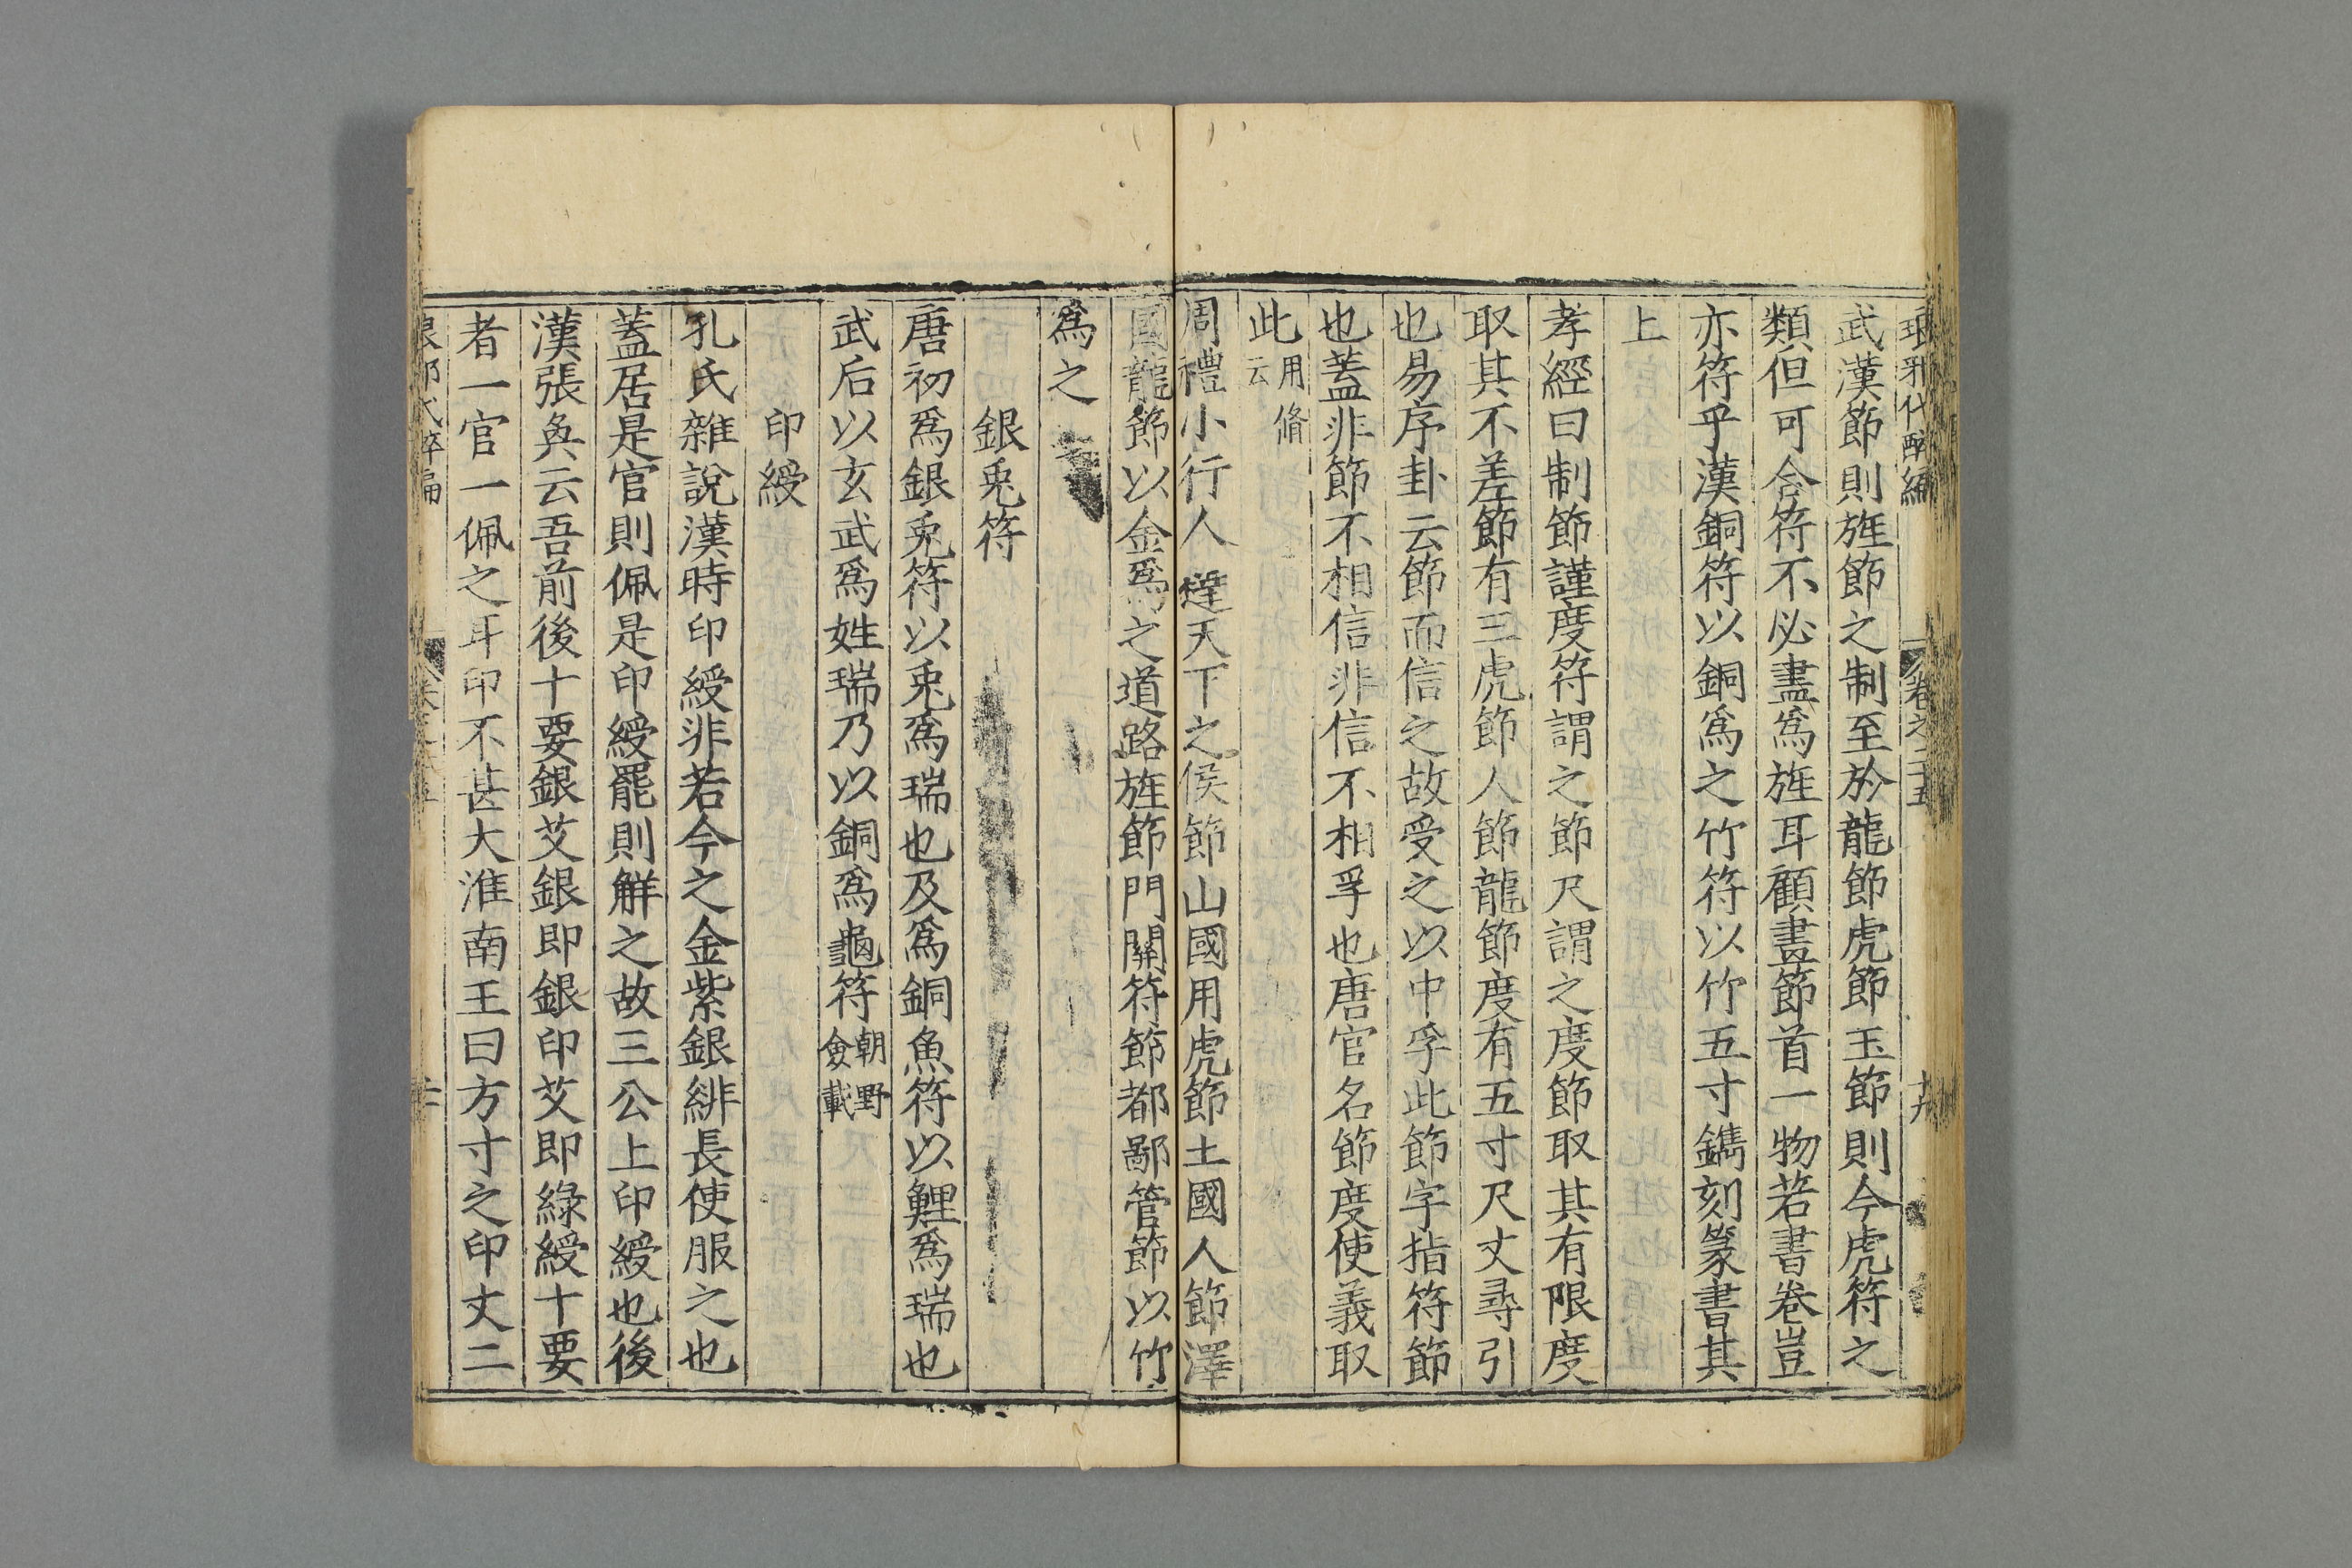 琅邪代醉編 卷之二十五
武漢節則旌節之制至於龍節虎節玉節則今虎符之
類但可合符不必盡爲旌耳顧畫節首一物若書卷豈
亦符乎漢銅符以銅爲之竹符以竹五寸鐫刻篆書其
上
孝經曰制節謹度符謂之節尺謂之度節取其有限度
取其不差節有三虎節人節龍節度有五寸尺丈尋引
也易序卦云節而信之故受之以中孚此節字指符節
也蓋非節不相信非信不相孚也唐官名節度使義取
此用脩云
周禮小行人達天下之侯節山國用虎節土國人節澤
國龍節以金爲之道路旌節門關符節都鄙管節以竹
爲之
銀兎符
唐初爲銀兎符以兎爲瑞也及爲銅魚符以鯉爲瑞也
武后以玄武爲姓瑞乃以銅爲龜符朝野僉載
印綬
孔氏雜說漢時印綬非若今之金紫銀緋長使服之也
蓋居是官則佩是印綬罷則解之故三公上印綬也後
漢張奐云吾前後十要銀艾銀即銀印艾即綠綬十要
者一官一佩之耳印不甚大淮南王曰方寸之印丈二